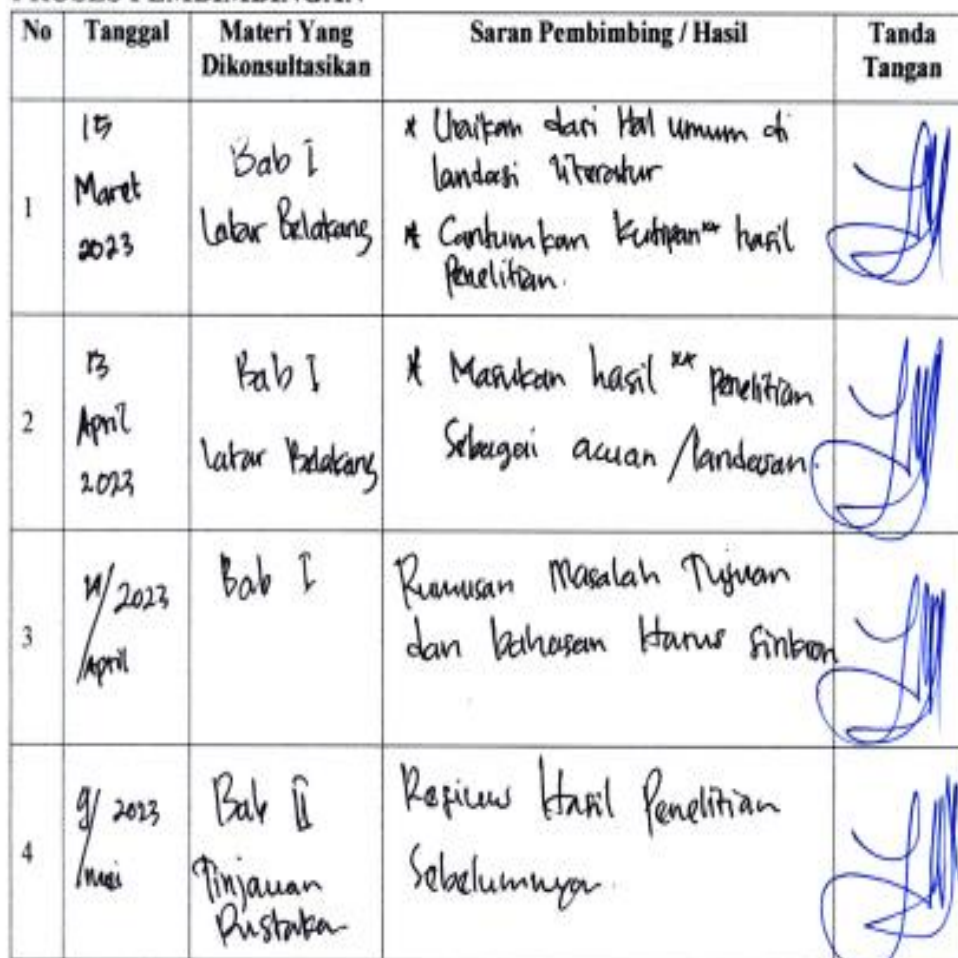 No Tanggal Materi Yang Dikonsultasikan Saran Pembimbing / Hasil Tanda Tangan
1
15
Maret
2023
Bab I
Latar Belakang
* Uraikan dari Hal umum di
landasi literatur
* Cantumkan kutipan** hasil
Penelitian.
2
13
April
2023
Bab I
Latar Belakang
* Masukan hasil ** penelitian
Sebagai acuan / landasan.
3
/ 2023
/April
Bab I
Rumusan Masalah Tujuan
dan bahasan Harus Sinkron
4
9/ 2023
/mei
Bab II
Tinjauan
Pustaka
Hasil Penelitian
Sebelumnya.